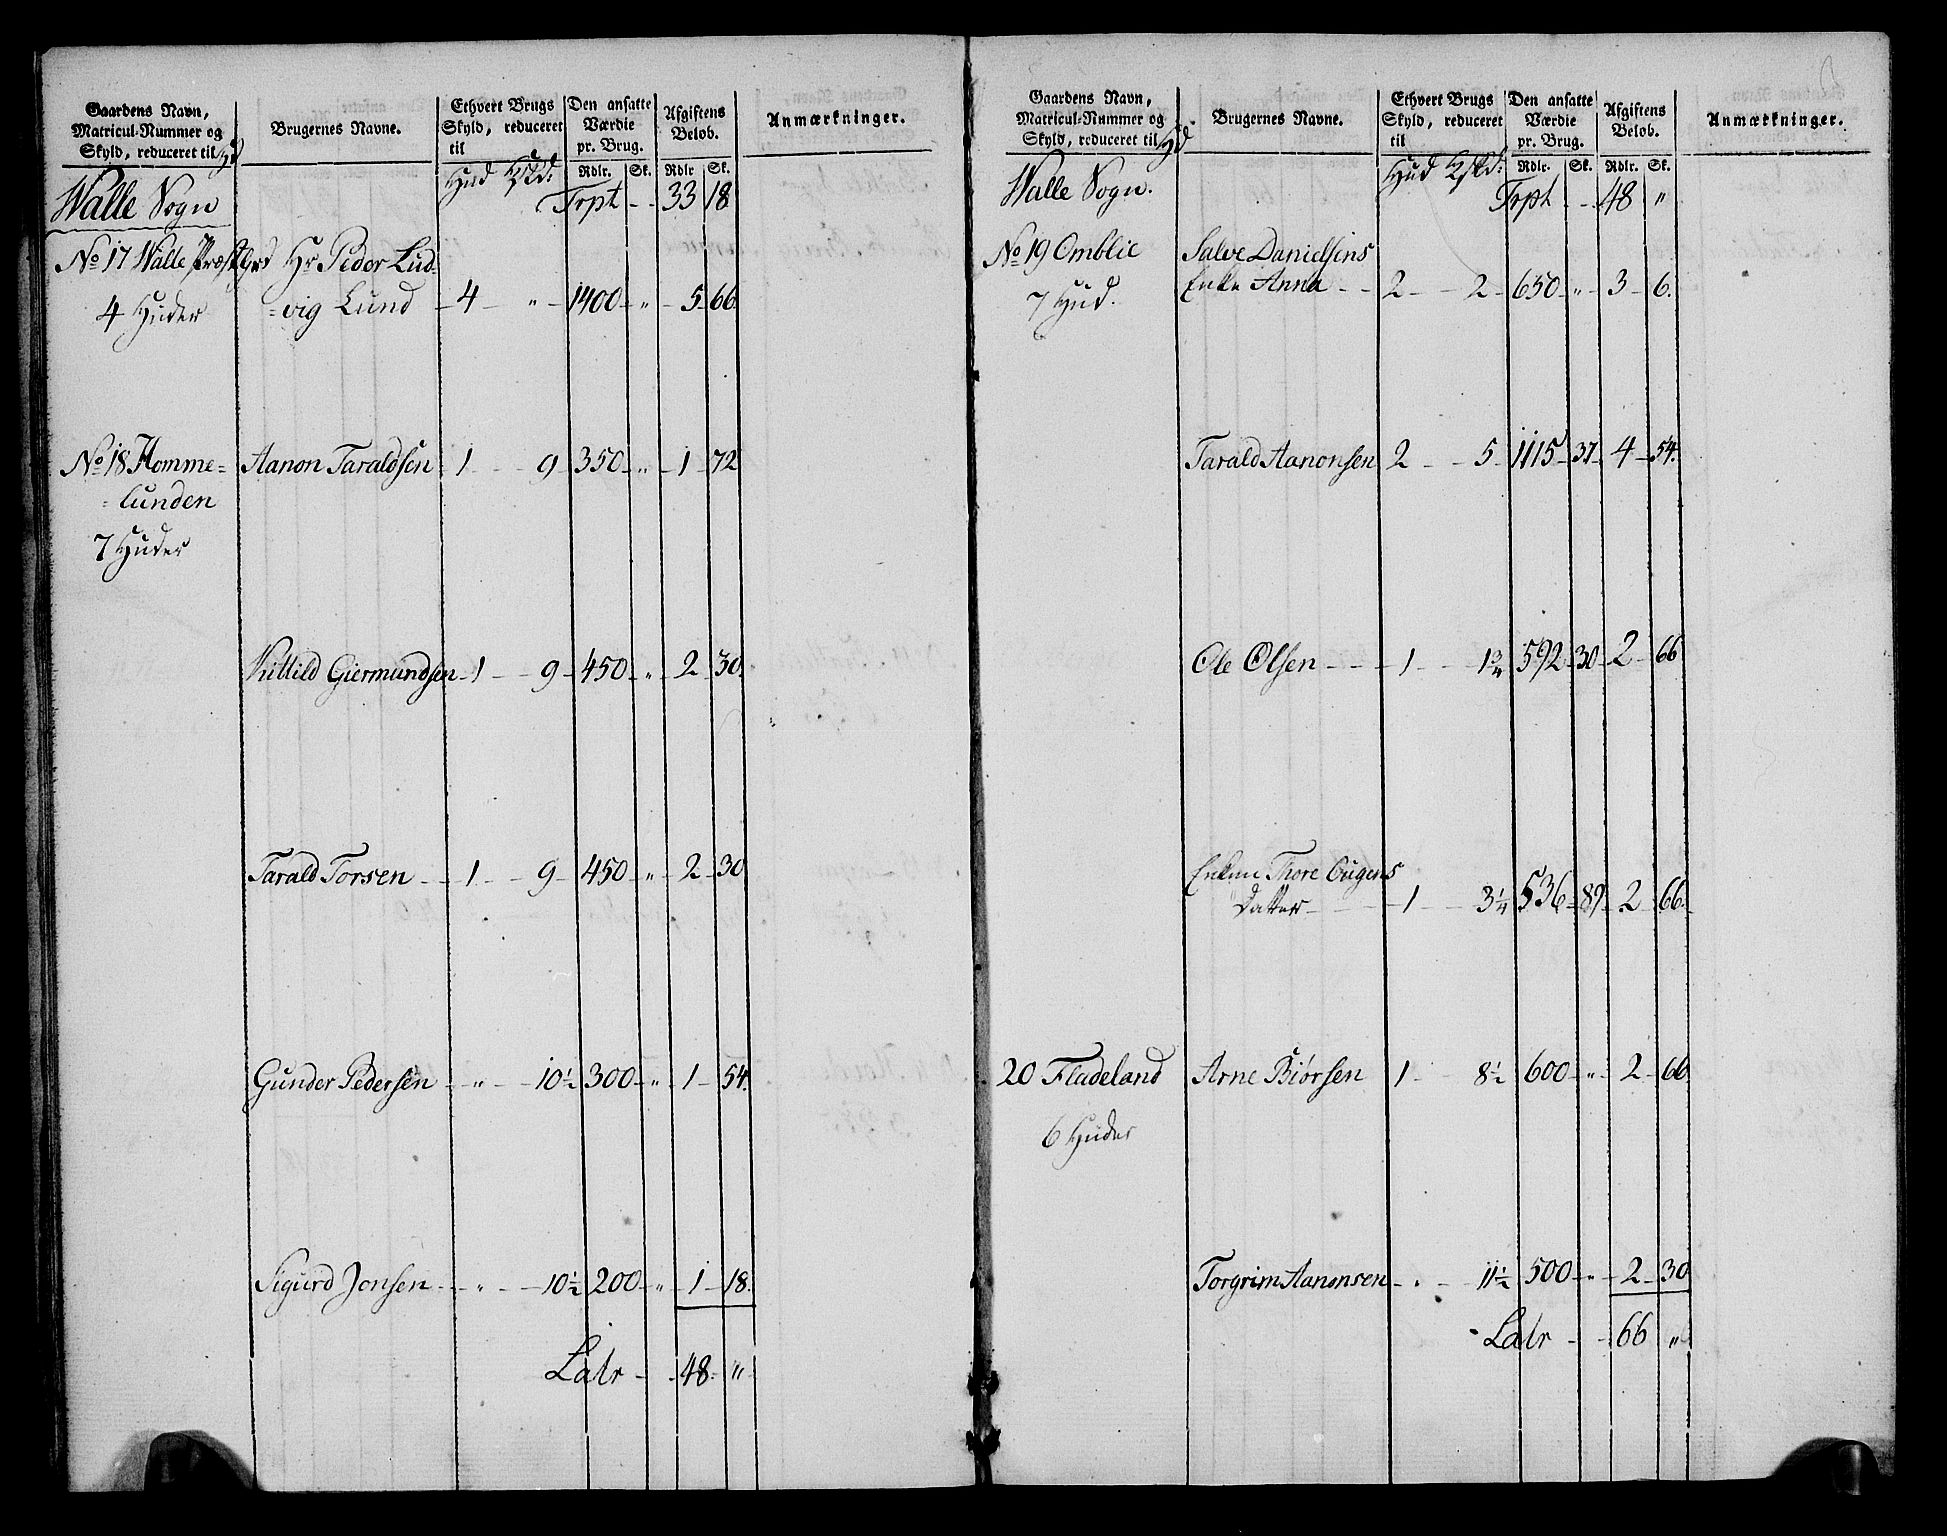 Gaardens Navn, Matricul-Nummer og Skyld, reduceret til Hd
Brugernes Navne.
Ethvert Brugs Skyld, reduceret til
Den ansatte Værdie pr. Brug.
Afgiftens Beløb.
Anmærkninger.
Hud Rdlr. Sk. Rdlr Sk.
Walle Sogn Trpt 33 18
No 17 Walle Præstgrd Hr Peder Lud-
4 Huder =vig Lund 4 " 1400 " 5 66
No 18 Homme= Aanon Taraldsen 1 9 350 " 1 72
=lunden
7 Huder
Kittild Giermundsen 1 9 450 " 2 30
Tarald Torsen 1 9 450 " 2 30
Gunder Pedersen " 10½ 300 " 1 54
Sigurd Jonsen " 10½ 200 " 1 18
Latr 48 "
Gaardens Navn, Matricul-Nummer og Skyld, reduceret til Hd
Brugernes Navne.
Ethvert Brugs Skyld, reduceret til
Den ansatte Værdie pr. Brug.
Afgiftens Beløb.
Anmærkninger.
Hud Rdlr. Sk. Rdlr. Sk.
Walle Sogn. Trpt 48 "
No 19 Omblie Salve Danielsens
7 Hud. Enke Anna 2 2 650 " 3 6
Tarald Aanonsen 2 5 1115 37 4 54
Ole Olsen 1 1¾ 592 30 2 66
Thore
Datter 1 3¼ 536 89 2 66
20 Fladeland Arne Biørsen 1 8½ 600 " 2 66
6 Huder
Torgrim Aanonsen " 11½ 500 " 2 30
Latr 66 "